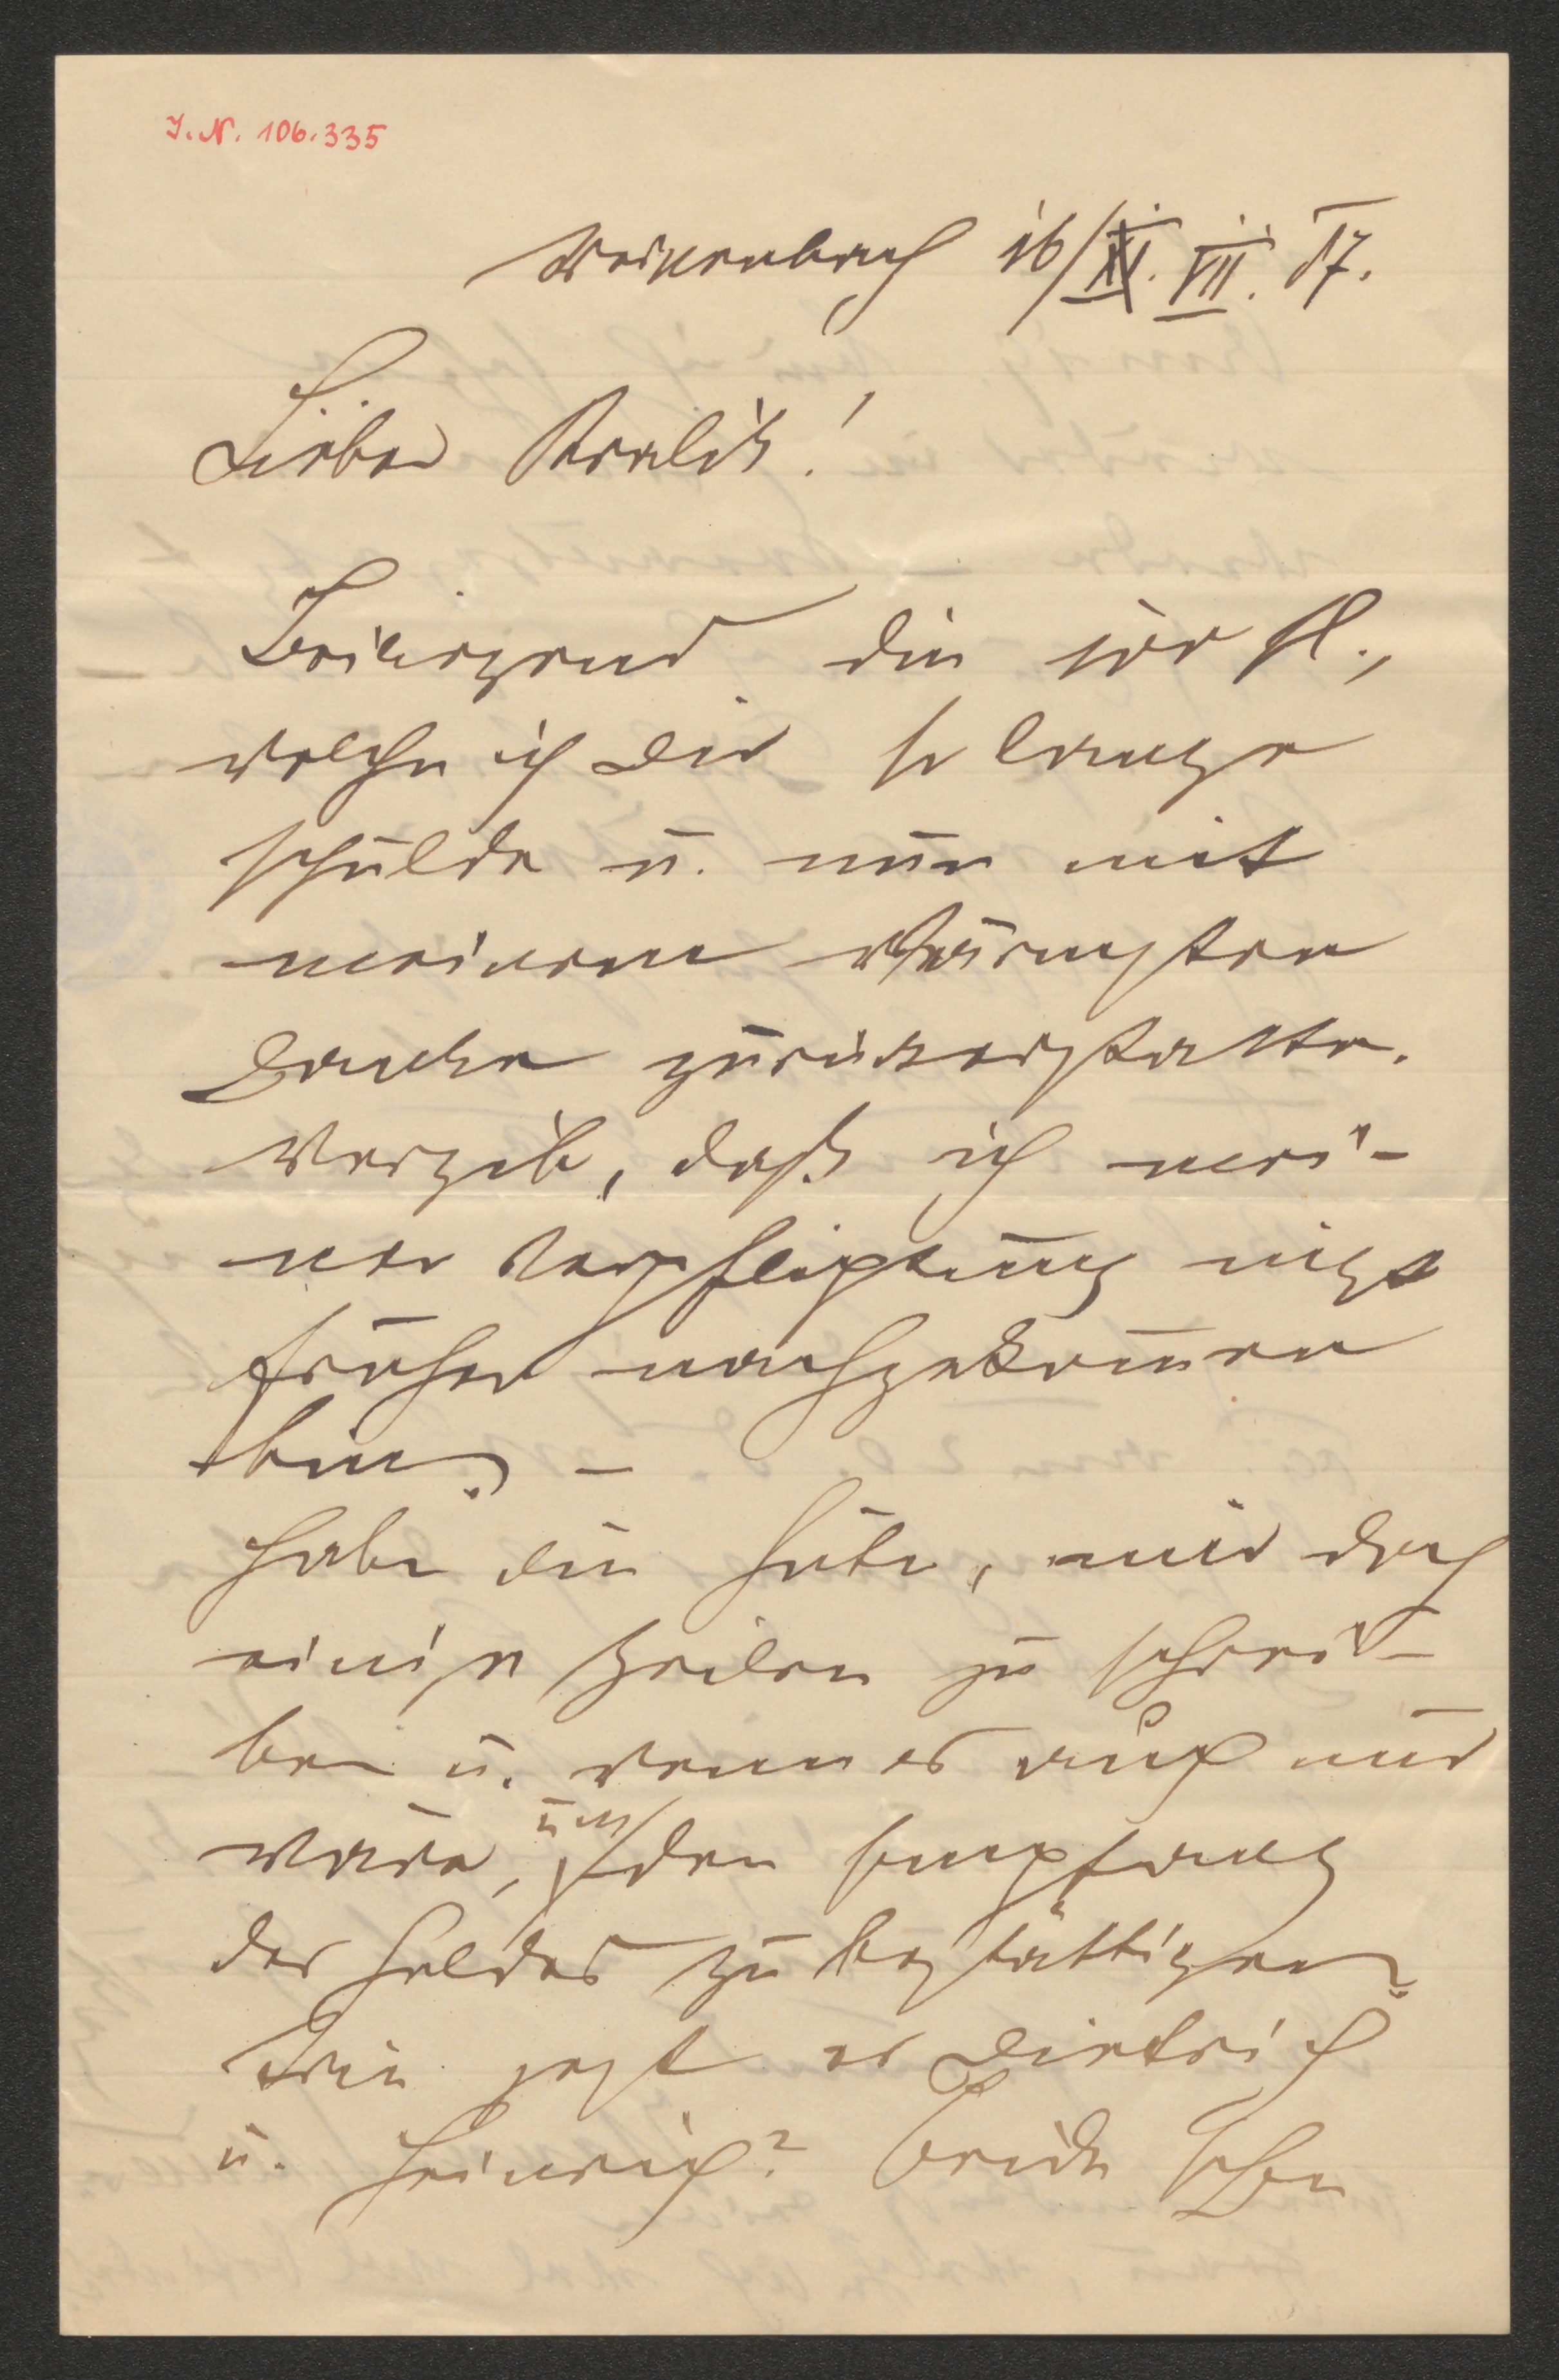 I. N. 106.335
Weikenbach 16/XI. VII. 87.
Lieber Kralik!
Beiliegend die 100 fl.,
welche ich Dir so lange
schulde u. nun mit
meinem wärmsten
Danke zurückerstatte.
Vergib, daß ich mei-
ner Verpflichtung nicht
früher nachgekommen
bin. –
Habe die Güte, mir doch
einige Zeilen zu schrei-
ben u. wenn es auch nur
wäre, um den Empfang
des Geldes zu bestättigen.
Wie geht es Dietrich
u. Heinrich? Beide schon